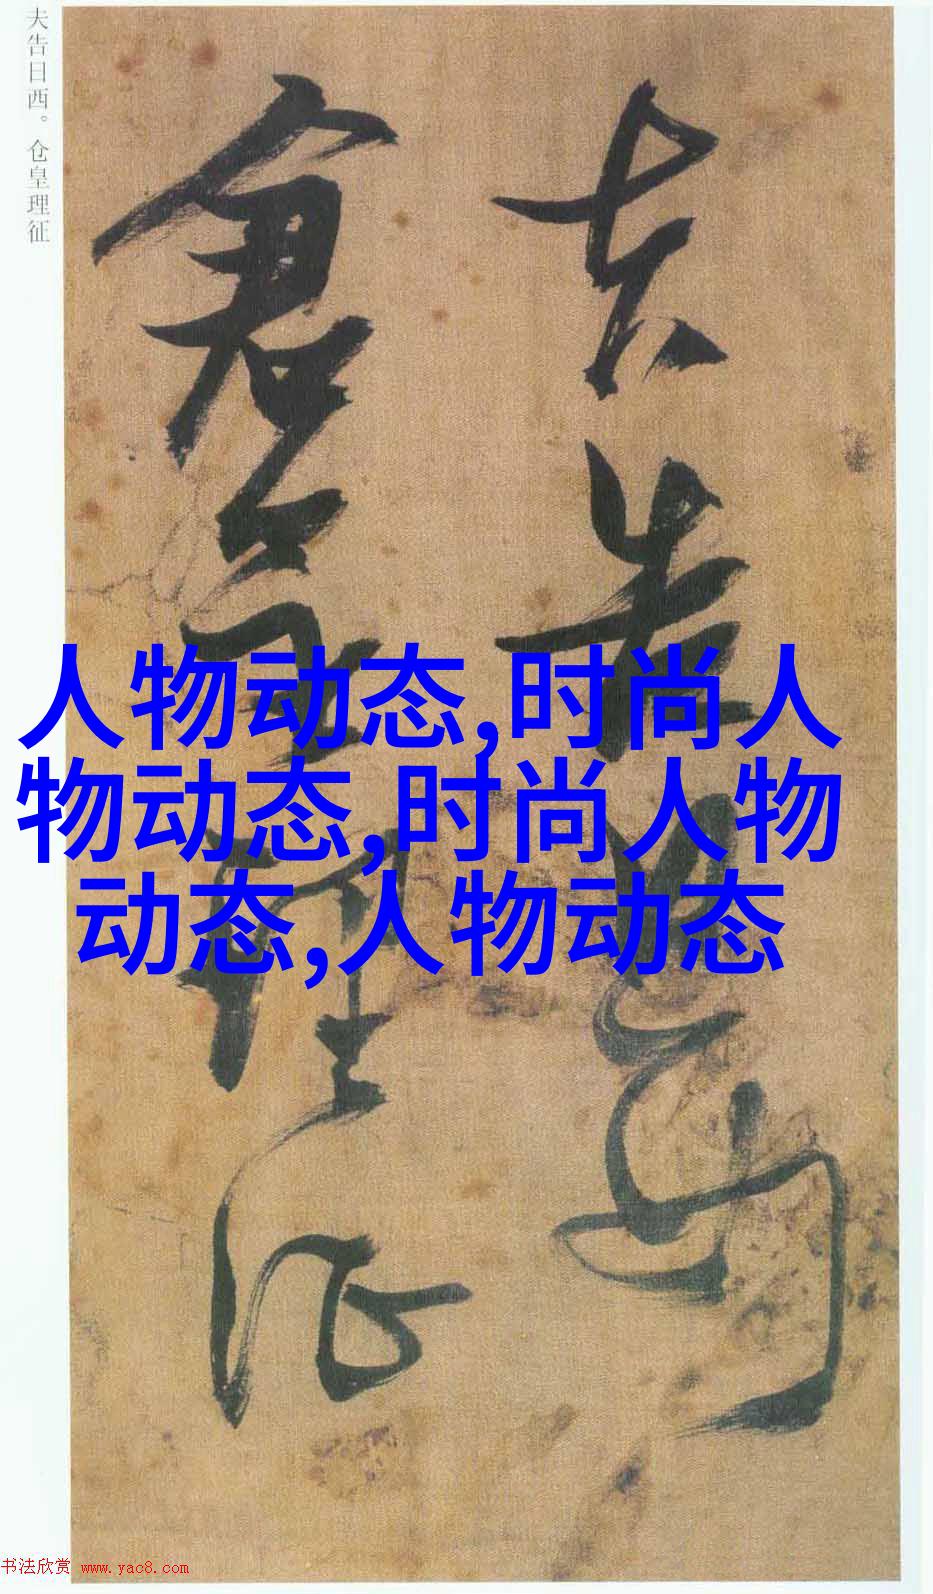 夫告日西
倉皇理征
夫告日西。仓皇理征
人物动态,时尚人
物动态,时尚人物
动态,人物动态
书法欣赏 www.yac8.com